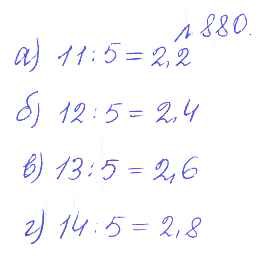 № 880.
а) 11 : 5 = 2,2
б) 12 : 5 = 2,4
в) 13 : 5 = 2,6
г) 14 : 5 = 2,8